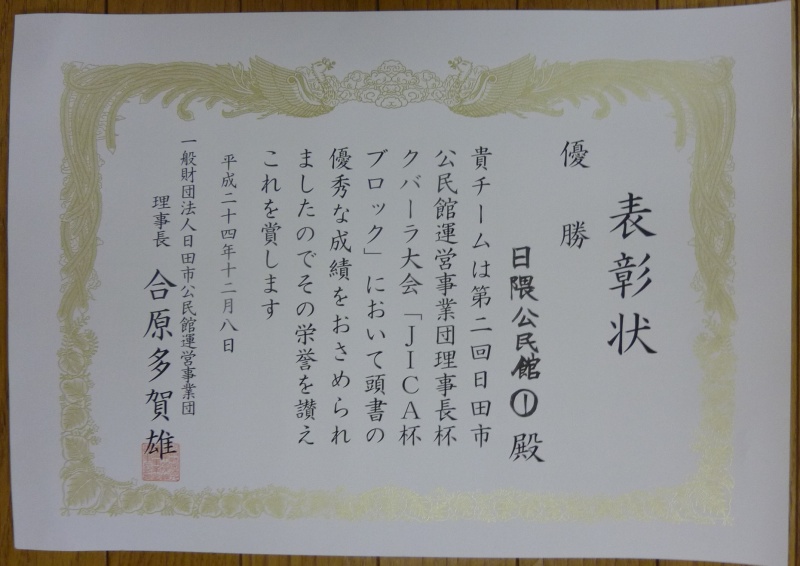 表彰状
優勝
日隈公民館① 殿
貴チームは第二回日田市
公民館運営事業団理事長杯
クバーラ大会「JICA杯
ブロック」において頭書の
優秀な成績をおさめられ
ましたのでその栄誉を讃え
これを賞します
平成二十四年十二月八日
一般財団法人日田市公民館運営事業団
理事長 合原多賀雄